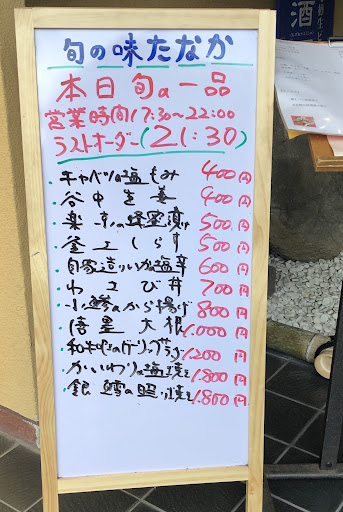 旬の味たなか
本日旬の一品
営業時間17:30~22:00
ラストオーダー(21:30)
・キャベツの塩もみ 400円
・谷中生姜 400円
・楽京の蜂蜜漬け 500円
・釜上しらす 500円
・自家造りいか塩辛 600円
・わさび丼 700円
・小鯵のから揚げ 800円
・大根 1,000円
・和牛のガーリック 1,200円
・かいわりの塩焼き 1,800円
・銀鱈の照り焼き 1,800円
酒